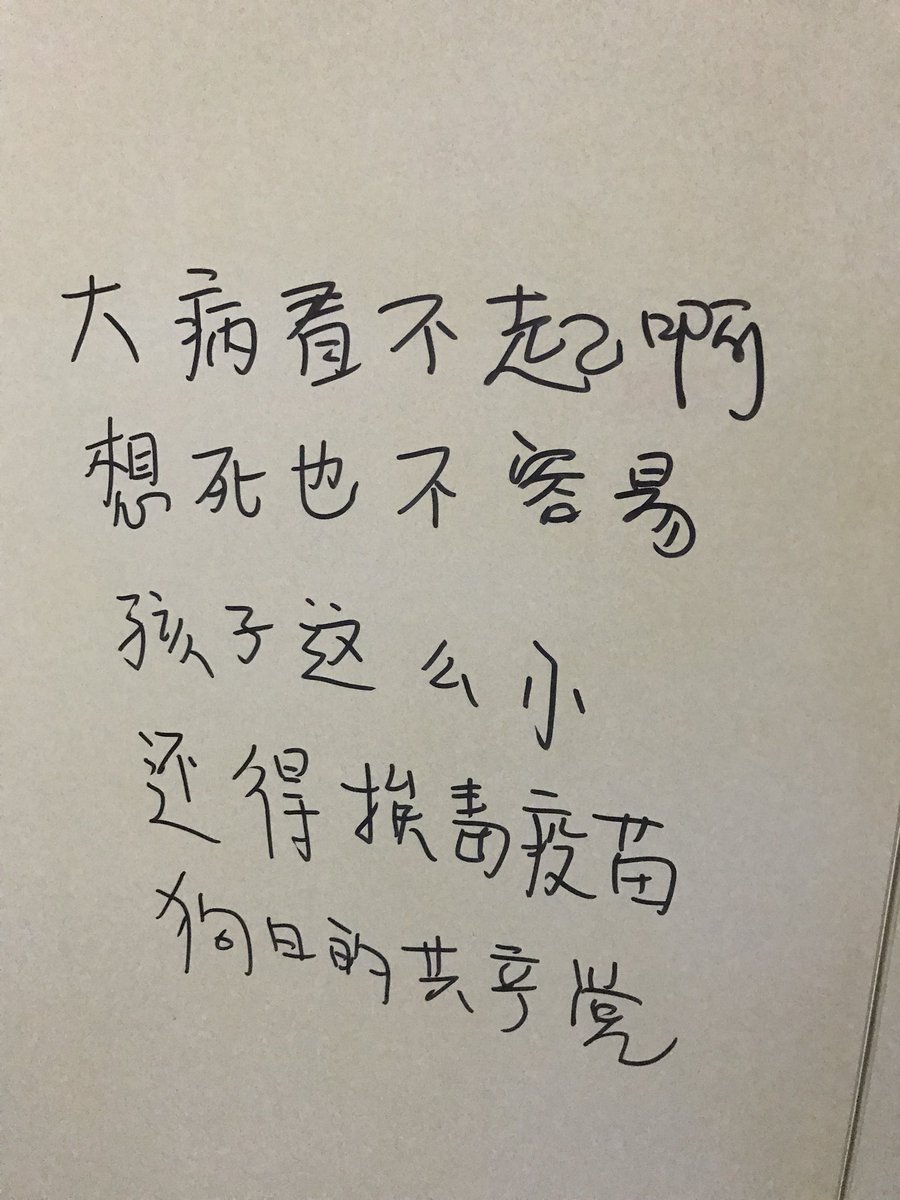 大病看不起啊
想死也不容易
孩子这么小
还得挨毒疫苗
狗日的共产党